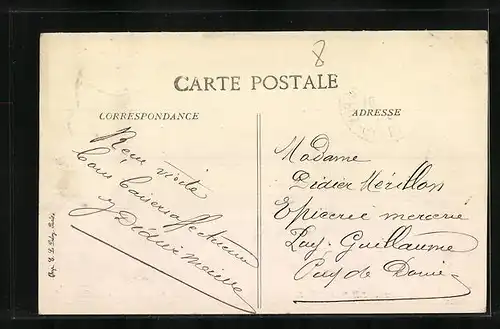 8
CARTE POSTALE
CORRESPONDANCE
Reçu visite
bons baisers affectueux
Didier
ADRESSE
Madame
Didier Mérillon
Epicerie mercerie
Puy-Guillaume
Puy de Dome